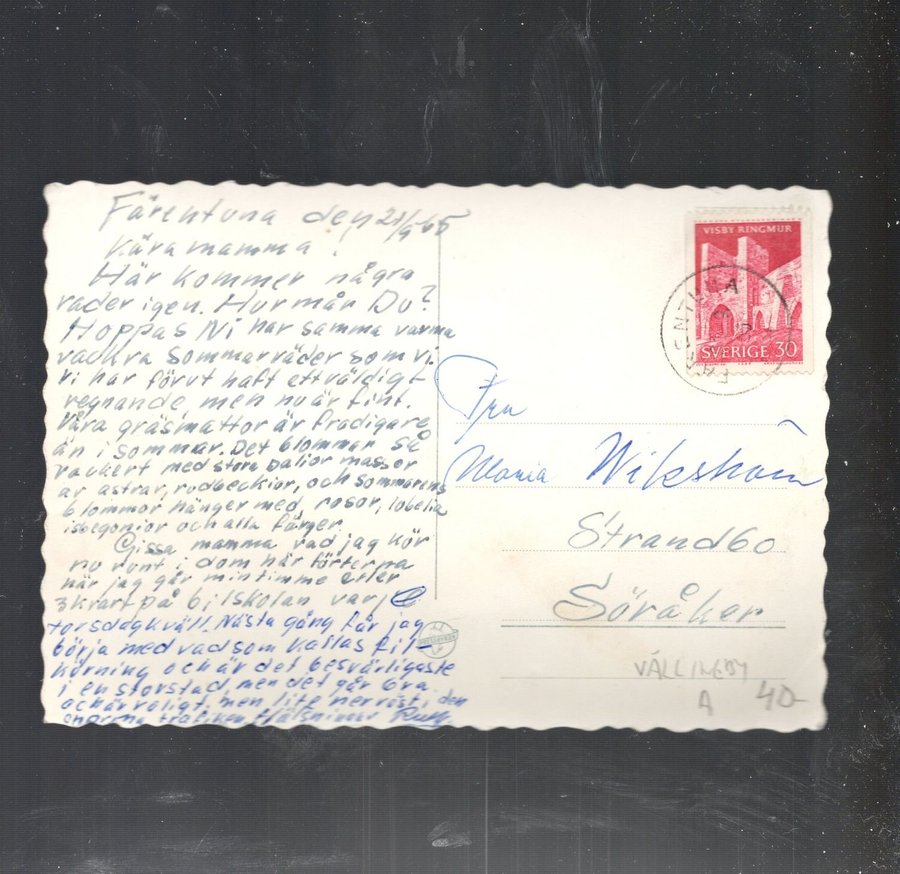 Färentuna den 21/9 65
Kära mamma!
Här kommer några
rader igen. Hur mår Du?
Hoppas Ni har samma varma
vackra sommarväder som vi.
Vi har förut haft ett väldigt
regnande, men nu är fint.
Våra gräsmattor är frodigare
än i sommar. Det blommar så
vackert med stora dalior massor
av astrar, rudbeckior, och sommarens
blommor hänger med, rosor, lobelia
isbegonior och alla färger.
Gissa mamma vad jag kör
nu runt i dom här förterna
när jag går min timme eller
3 kvart på bilskolan varje
torsdagkväll. Nästa gång får jag
börja med vad som kallas fil-
körning och är det besvärligaste
i en storstad, men det går bra
och är roligt, men lite nervöst i den
enorma trafiken Hälsningar Ruth
VISBY RINGMUR
SVERIGE 30
FÄRENTUNA
Fru
Maria Wikström
Strandbo
Söråker
VÄLLINGBY
A 40-